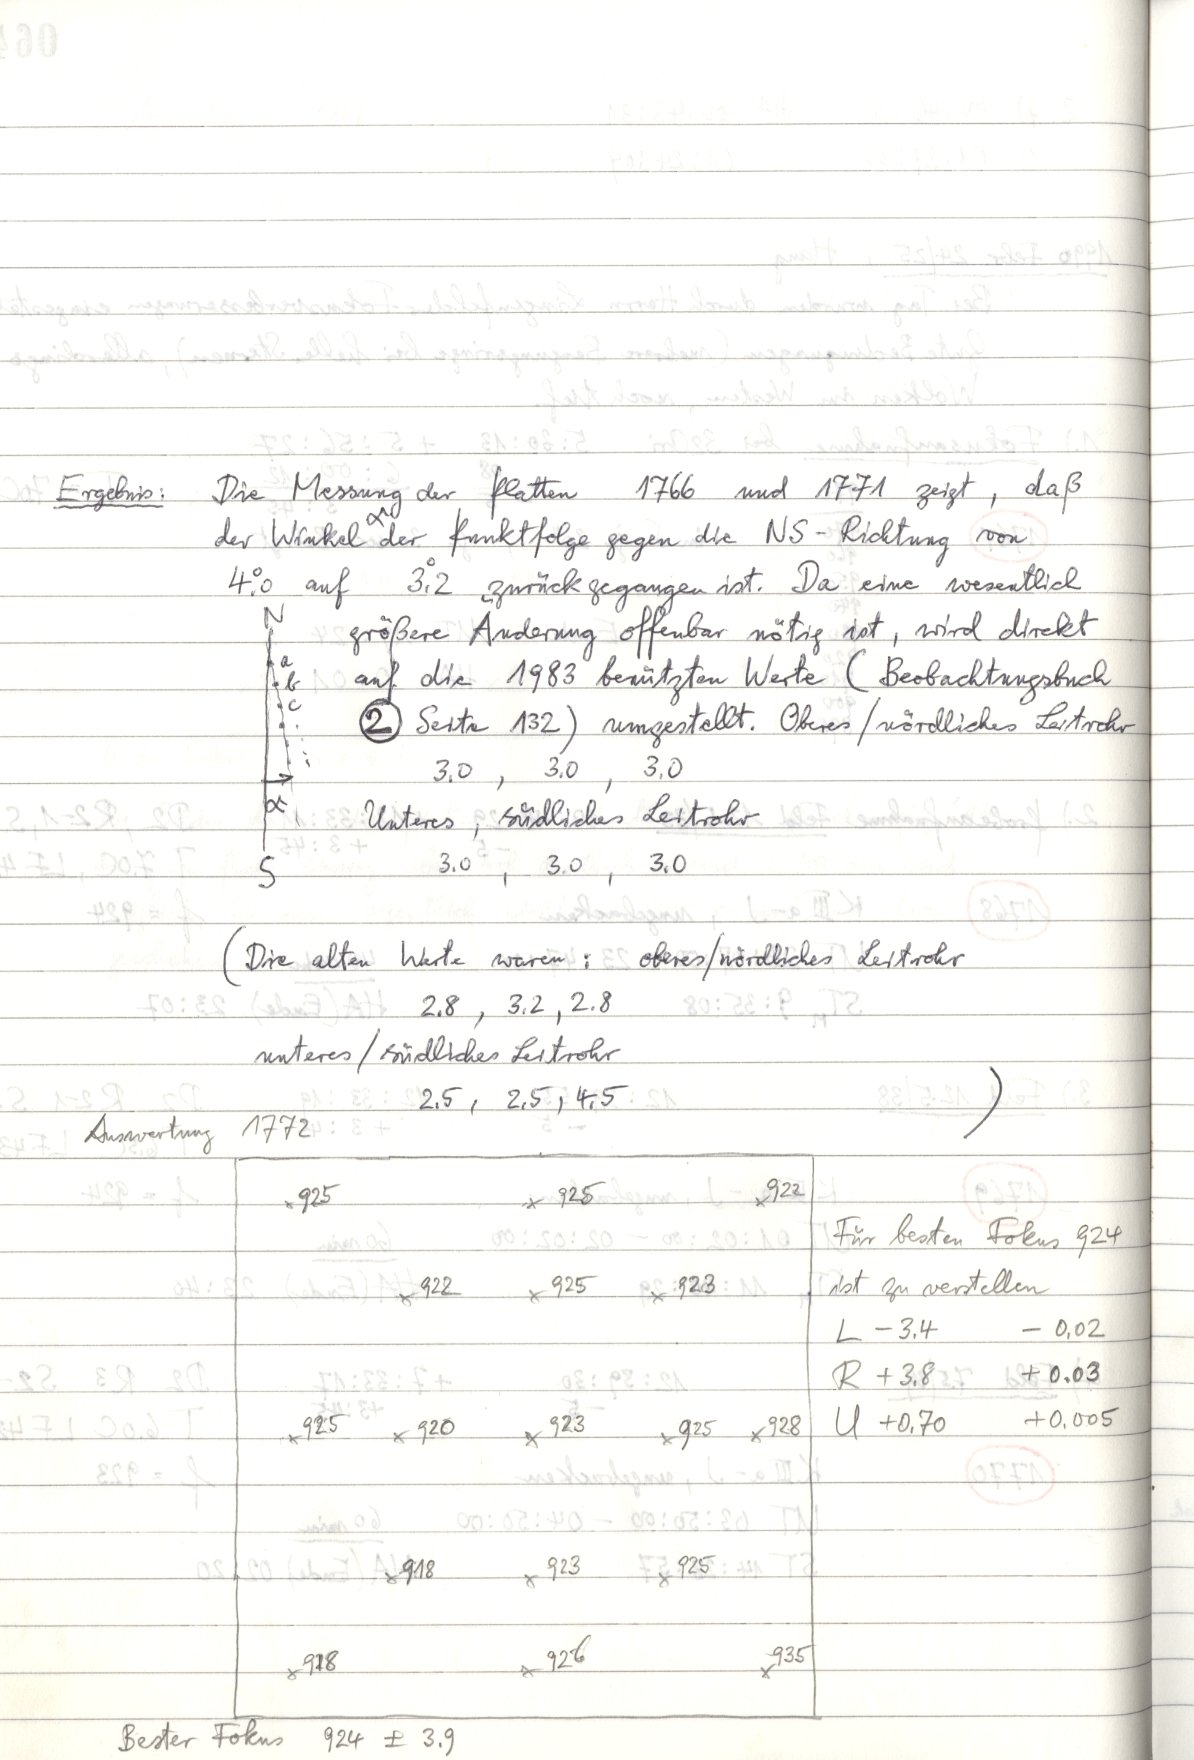 Ergebnis: Die Messung der Platten 1766 und 1771 zeigt, daß
der Winkel α der Punktfolge gegen die NS-Richtung von
4°.0 auf 3°.2 zurückgegangen ist. Da eine wesentlich
größere Änderung offenbar nötig ist, wird direkt
auf die 1983 benützten Werte (Beobachtungsbuch
② Seite 132) umgestellt. Oberes/nördliches Leitrohr
3.0 , 3.0 , 3.0
Unteres, südliches Leitrohr
3.0 , 3.0 , 3.0
N
a
b
c
α
S
(Die alten Werte waren: oberes/nördliches Leitrohr
2.8 , 3.2 , 2.8
unteres/südliches Leitrohr
2.5 , 2.5 , 4.5 )
Auswertung 1772
x 925 x 925 x 922
x 922 x 925 x 923
x 925 x 920 x 923 x 925 x 928
x 918 x 923 x 925
x 918 x 926 x 935
Für besten Fokus 924
ist zu verstellen
L -3.4 -0.02
R +3.8 +0.03
U +0.70 +0.005
Bester Fokus 924 ± 3.9